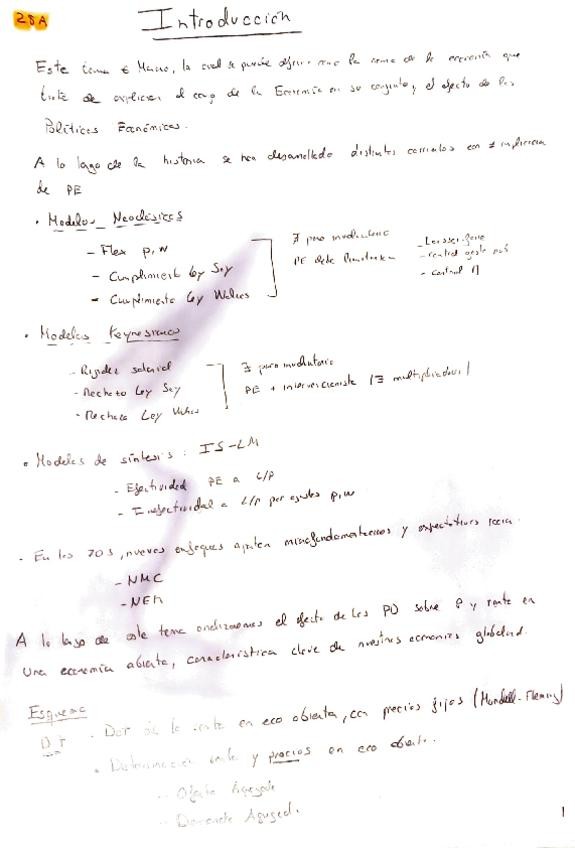 28A
Introducción
Este tema es Macro, la cual se puede definir como la rama de la economía que
trata de explicar el comp de la Economía en su conjunto y el efecto de las
Políticas Económicas.
A lo largo de la historia se han desarrollado distintas corrientes con ≠ implicancia
de PE
• Modelos Neoclásicos
- Flex p, w
- Cumplimiento Ley Say
- Cumplimiento Ley Walras
∄ paro involuntario
PE debe limitarse
- Laissez-faire
- control gasto púb
- control Π
• Modelos Keynesianos
- Rigidez salarial
- Rechazo Ley Say
- Rechazo Ley Walras
∃ paro involuntario
PE + intervencionista (∃ multiplicadores)
• Modelos de síntesis: IS-LM
- Efectividad PE a C/P
- Inefectividad a L/P por ajustes p, w
- En los 70s, nuevos enfoques aportan microfundamentaciones y expectativas racio.
- NMC
- NEK
A lo largo de este tema analizaremos el efecto de las PD sobre P y renta en
una economía abierta, característica clave de nuestras economías
Esquema
DT
• Det de la renta en eco abierta, con precios fijos (Mundell-Fleming)
• Determinación renta y precios en eco abierta.
- Oferta Agregada
- Demanda Agregad.
1